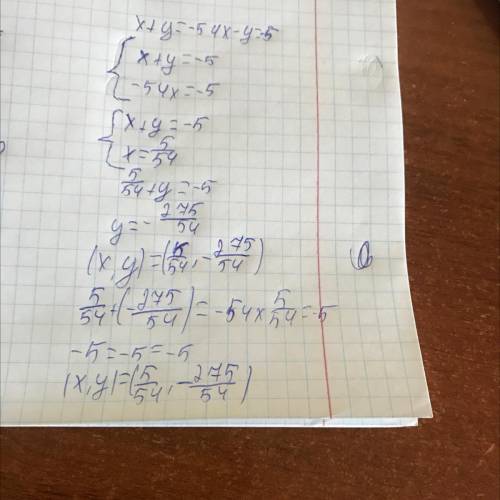 x+y=-54x-y=-5
x+y=-5
-54x=-5
x+y=-5
x=5/54
5/54+y=-5
y=-275/54
(x,y)=(5/54,-275/54)
5/54+(-275/54)=-54×5/54=-5
-5=-5=-5
(x,y)=(5/54,-275/54)